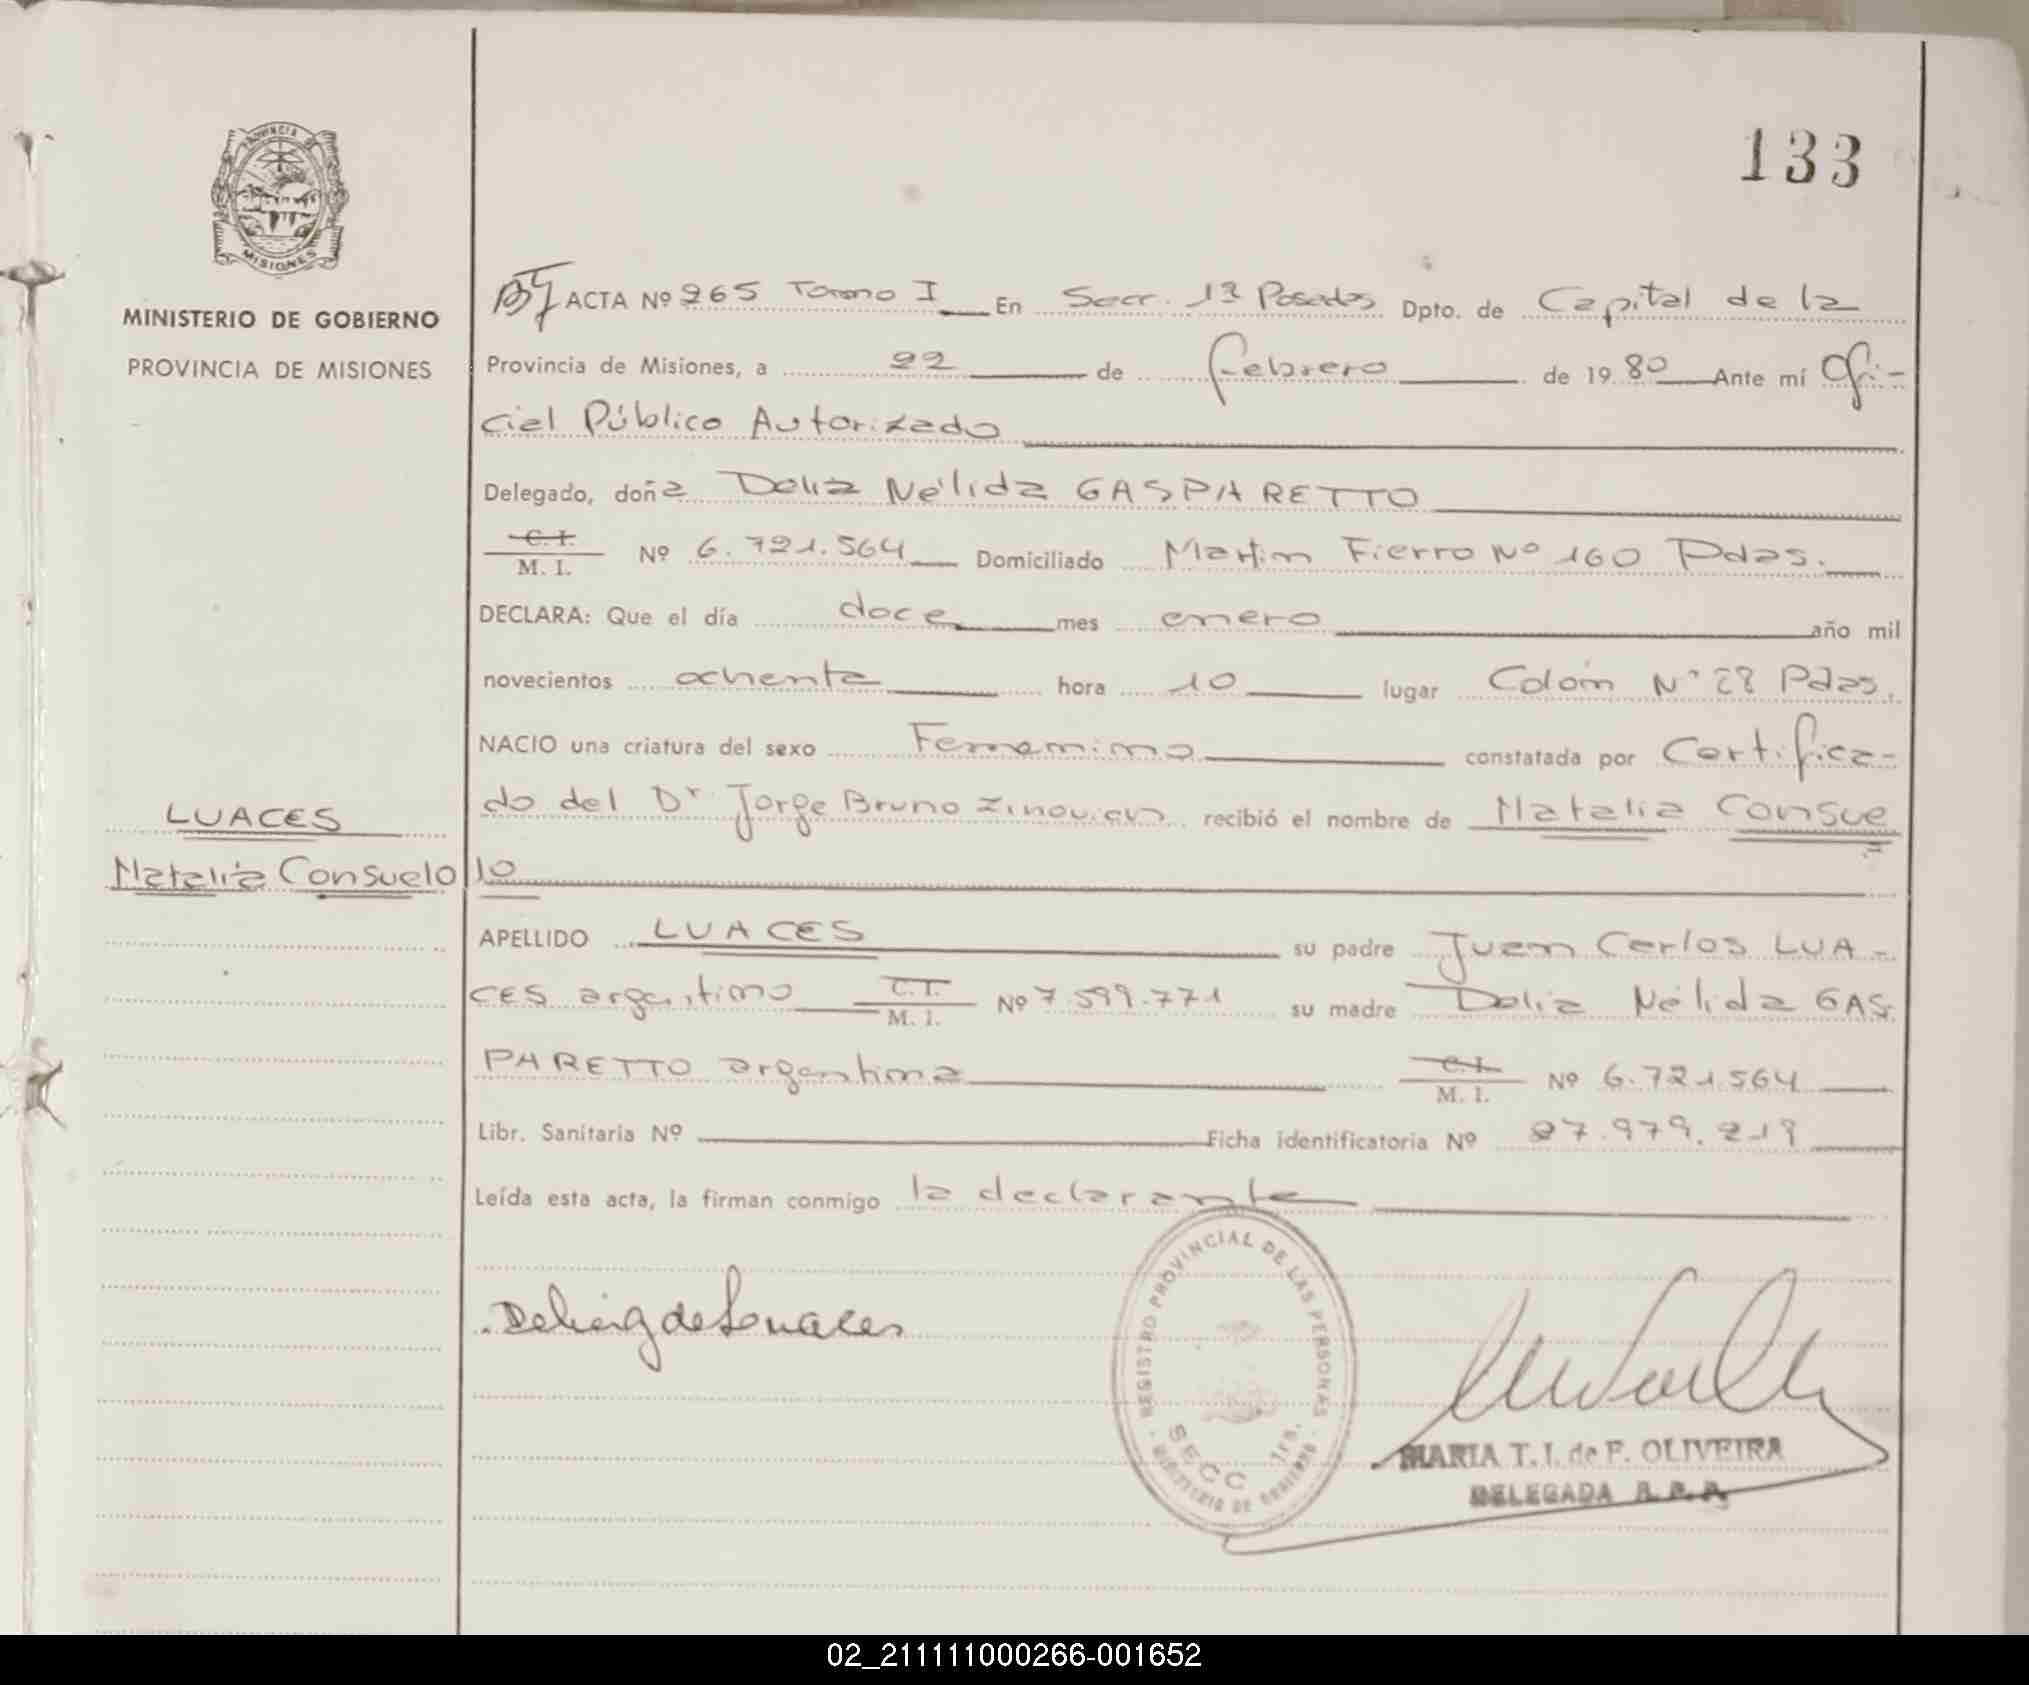 133
PROVINCIA DE
MISIONES
MINISTERIO DE GOBIERNO
PROVINCIA DE MISIONES
ACTA Nº 265 Tomo I En Secc. 1ª Posadas Dpto. de Capital de la
Provincia de Misiones, a 22 de febrero de 1980 Ante mí Ofi-
cial Público Autorizado
Delegado, doña Delia Nélida GASPARETTO
C. I.
M. I. Nº 6.721.564 Domiciliado Martin Fierro Nº 160 Pdas.
DECLARA: Que el día doce mes enero año mil
novecientos ochenta hora 10 lugar Colón Nº 28 Pdas.
NACIO una criatura del sexo Femenino constatada por Certifica-
do del Dr Jorge Bruno recibió el nombre de Natalia Consue
lo
LUACES
Natalia Consuelo
APELLIDO LUACES su padre Juan Carlos LUA-
CES argentino C. I. M. I. Nº 7.599.771 su madre Delia Nélida GAS
PARETTO argentina C. I. M. I. Nº 6.721.564
Libr. Sanitaria Nº Ficha identificatoria Nº 27.979.219
Leída esta acta, la firman conmigo la declarante
REGISTRO PROVINCIAL DE LAS PERSONAS
SECC 1ra.
MINISTERIO DE GOBIERNO
MARIA T. I. de F. OLIVEIRA
DELEGADA
02_211111000266-001652